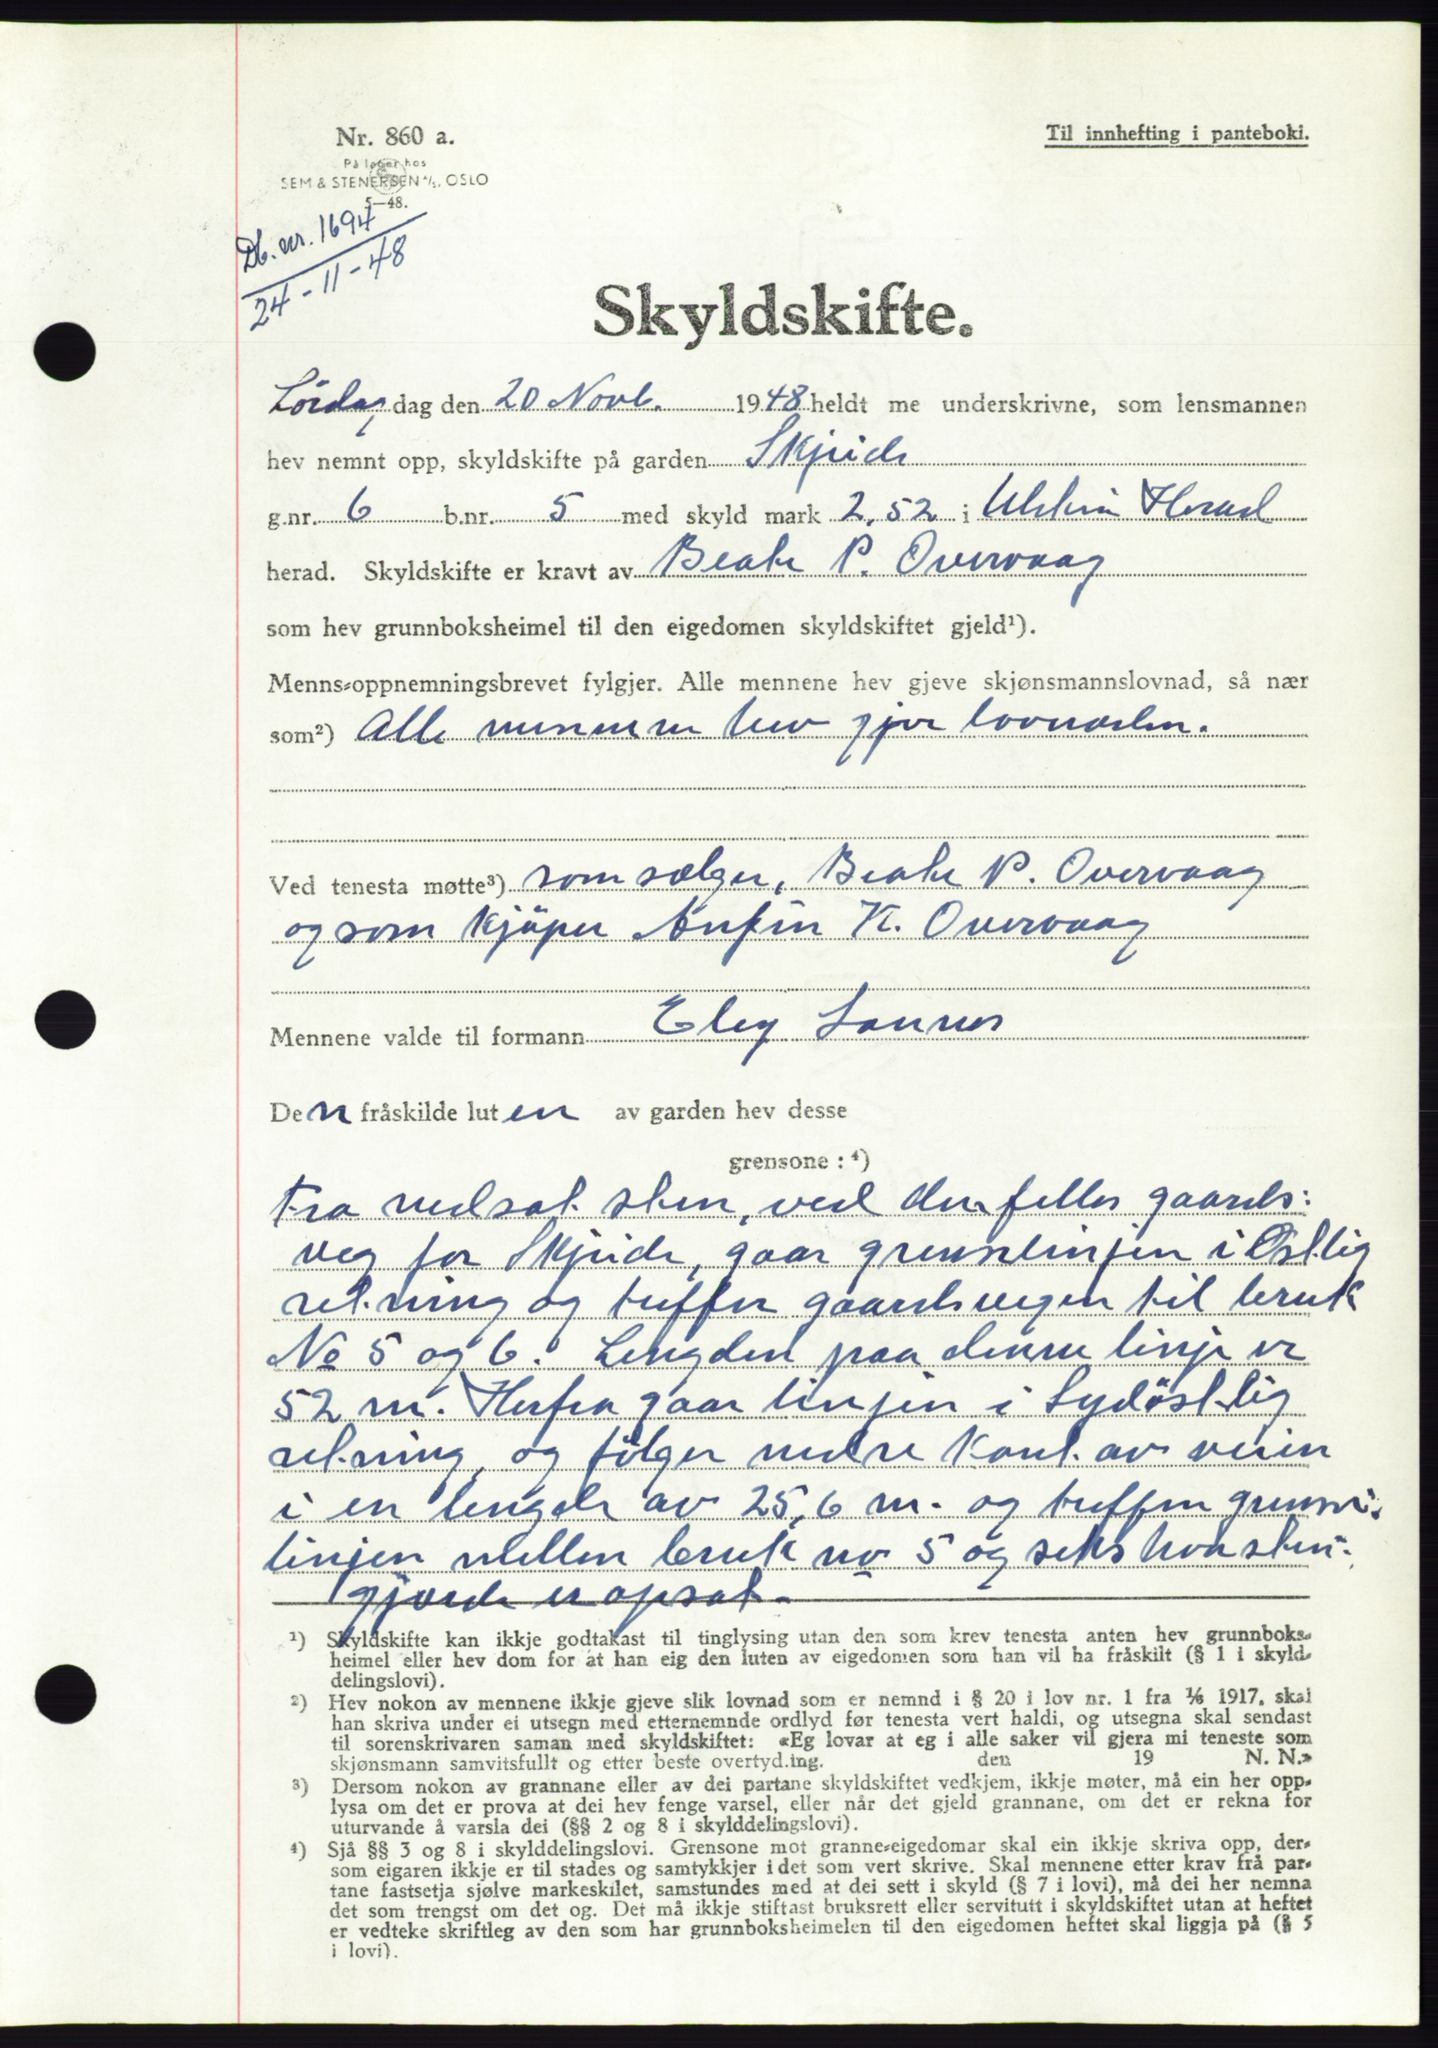 Nr. 860 a.
Til innhefting i panteboki.
På lager hos
SEM & STENERSEN A/S, OSLO
5—48.
Db. nr. 1694
24-11-48
Skyldskifte.
Lördag dag den 20 Novb. 1948 heldt me underskrivne, som lensmannen
hev nemnt opp, skyldskifte på garden Skjeide
g.nr. 6 b.nr. 5 med skyld mark 2,52 i Ulstein Herad
herad. Skyldskifte er kravt av Beate P. Overvaag
som hev grunnboksheimel til den eigedomen skyldskiftet gjeld¹).
Menns-oppnemningsbrevet fylgjer. Alle mennene hev gjeve skjønsmannslovnad, så nær
som²) Alle mennene hev gjeve lovnaden.
Ved tenesta møtte³) som sælger, Beate P. Overvaag
og som kjöper Anfin K. Overvaag
Mennene valde til formann Eley
Den fråskilde luten av garden hev desse
grensone : ⁴)
Fra nedsat sten, ved den felles gaards:
veg for Skjeide, gaar grenselinjen i Østlig
retning og treffer gaardsvegen til bruk
No 5 og 6. Lengden paa denne linje er
52 m. Herfra gaar linjen i Sydöstlig
retning, og fölger nedre kant av veien
i en lengde av 25,6 m. og treffer grense:
linjen mellen bruk no 5 og seks hvor sten:
gjærde er opsat.
¹) Skyldskifte kan ikkje godtakast til tinglysing utan den som krev tenesta anten hev grunnboks-
heimel eller hev dom for at han eig den luten av eigedomen som han vil ha fråskilt (§ 1 i skyld-
delingslovi).
²) Hev nokon av mennene ikkje gjeve slik lovnad som er nemnd i § 20 i lov nr. 1 fra 1/6 1917, skal
han skriva under ei utsegn med etternemnde ordlyd før tenesta vert haldi, og utsegna skal sendast
til sorenskrivaren saman med skyldskiftet: «Eg lovar at eg i alle saker vil gjera mi teneste som
skjønsmann samvitsfullt og etter beste overtyd.ing. den 19 N. N.»
³) Dersom nokon av grannane eller av dei partane skyldskiftet vedkjem, ikkje møter, må ein her opp-
lysa om det er prova at dei hev fenge varsel, eller når det gjeld grannane, om det er rekna for
uturvande å varsla dei (§§ 2 og 8 i skylddelingslovi).
⁴) Sjå §§ 3 og 8 i skylddelingslovi. Grensone mot granne-eigedomar skal ein ikkje skriva opp, der-
som eigaren ikkje er til stades og samtykkjer i det som vert skrive. Skal mennene etter krav frå par-
tane fastsetja sjølve markeskilet, samstundes med at dei sett i skyld (§ 7 i lovi), må dei her nemna
det som trengst om det og. Det må ikkje stiftast bruksrett eller servitutt i skyldskiftet utan at heftet
er vedteke skriftleg av den som har grunnboksheimelen til den eigedomen heftet skal liggja på (§ 5
i lovi).